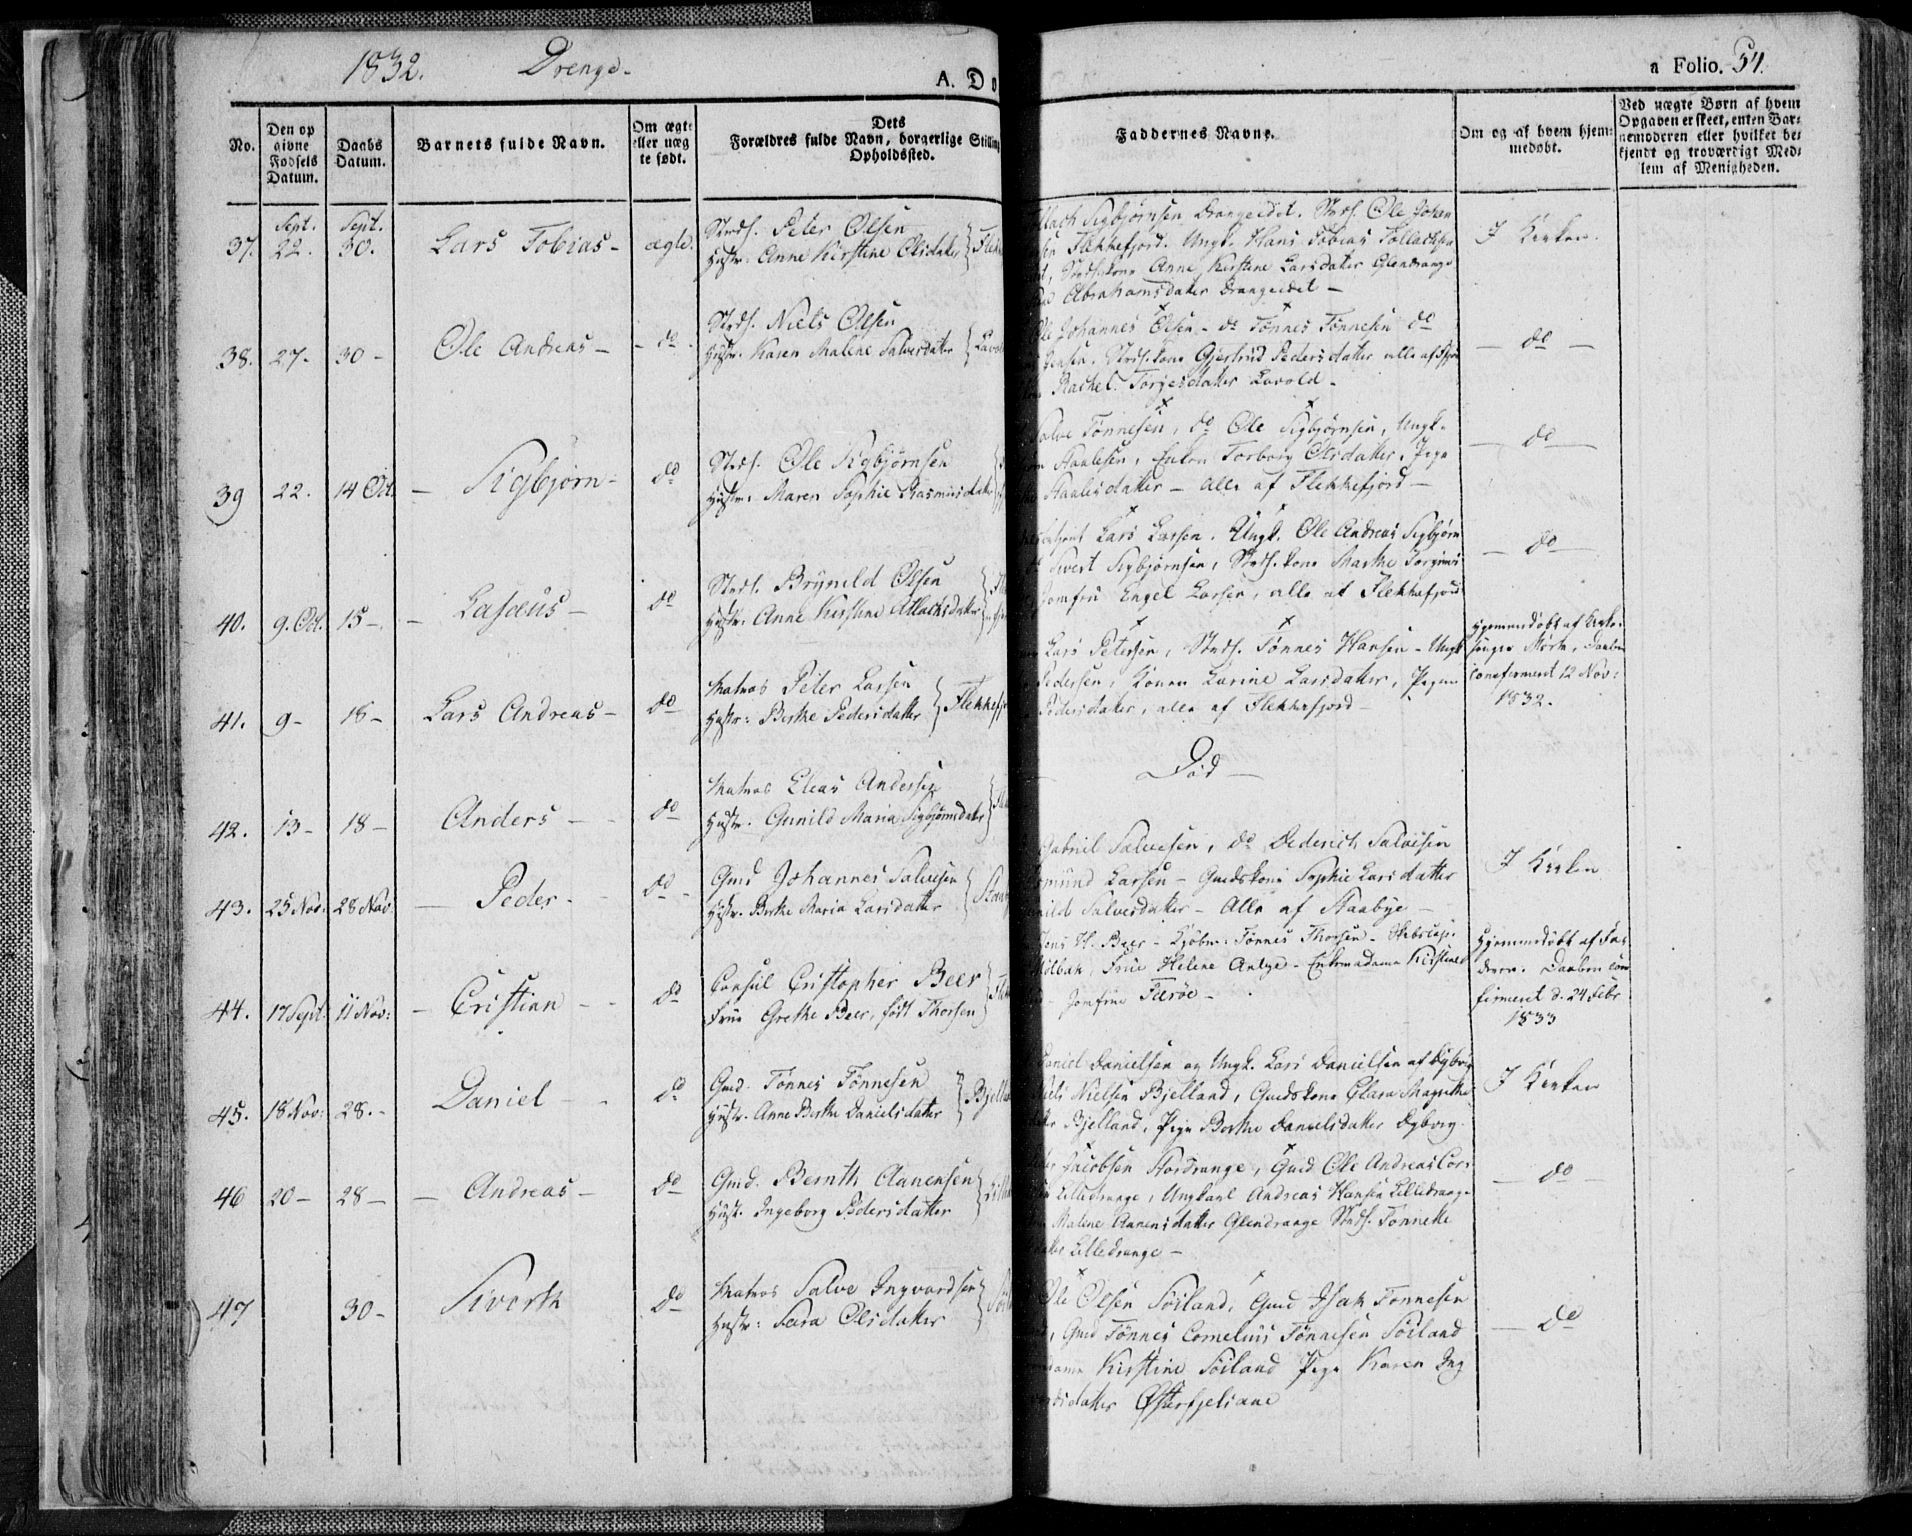 1832. Drenge.
A. Do
a Folio. 54.
No.
Den op
givne
Fødsels
Datum.
Daabs
Datum.
Barnets fulde Navn.
Om ægte
eller uæg
te født.
Dets
Forældres fulde Navn, borgerlige Stilling
Opholdssted.
Faddernes Navne.
Om og af hvem hjem:
medøbt.
Ved uægte Børn af hvem
Opgaven er skeet, enten Bar:
nemoderen eller hvilket be:
kjendt og troværdigt Med:
lem af Menigheden.
37. Sept. 22. Sept. 30. Lars Tobias - ægte.
Strds. Peter Olsen
Hustr. Anne Kirstine Olsdatter
Sigbjørnsen Drangeidet. Strds. Ole Johan
Flekkefjord. Ungk. Hans Tobias Tollachsen
Strds.kone Anne Kirstine Larsdatter Glendrange
Abrahamsdatter Drangeidet -
I Kirken.
38. 27- 30- Ole Andreas - do
Strds. Niels Olsen
Hustr. Karen Malene Salvesdatter
Ole Johannes Olsen - do Tønnes Tønnesen do
Jensen. Strds.kone Gjertrud Pedersdatter alle af
Rachel Torjesdatter Lavold -
do
39 22. 14 Oct. - Sigbjørn - do
Strds. Ole Sigbjørnsen
Hustr: Maren Sophie Rasmusdatter
Salve Tønnesen, do Ole Sigbjørnsen, Ungk.
Staalesen, Enken Torborg Olsdatter, Pige
Staalesdatter - alle af Flekkefjord -
do
40. 9. Oct. 15- - Lasæus - do
Strds. Brynild Olsen
Hustr: Anne Kirstine Atlaksdatter
Lars Larsen. Ungk. Ole Andreas Sigbjørn
Sivert Sigbjørnsen, Strds.kone Marthe Torgrims
Jomfru Engel Larsen, alle af Flekkefjord
do
41. 9- 18- Lars Andreas - do
Matros Peter Larsen
Hustr: Berthe Pedersdatter
Flekkefj
Lars Petersen, Strds. Tønnes Hansen - Ungk
Pedersen, Konen Karine Larsdatter, Pigen
Pedersdatter, alle af Flekkefjord -
Hjemmedøbt af Kirke:
sanger Mørch, Daaben
confirmeret 12 Nov:
1832.
42. 13- 18- Anders - do
Matros Elias Andersen
Hustr. Gunild Maria Sigbjørnsdatter
Død -
43. 25 Nov: 28 Nov: - Peder - do
Gmd Johannes Salvesen
Hustr. Berthe Maria Larsdatter
Gabriel Salvesen, do Dederich Salvesen
Larsen - Gmdskone Sophie Larsdatter
Salvesdatter - Alle af Staabye -
I Kirken
44. 17 Sept: 11 Nov: - Cristian - do
Consul Cristopher Beer
Frue Grethe Beer, født Thorsen
Jens H. Beer - Kjøbm: Tønnes Thorsen - Skibscap.
Frue Helene Antze - Enkemadame Kirstine
- Jomfrue Færøe -
Hjemmedøbt af Fa:
deren. Daaben con
firmeret d. 24 Febr
1833
45. 18 Nov: 28.- Daniel - do
Gmd. Tønnes Tønnesen
Hustr. Anne Berthe Danielsdatter
Daniel Danielsen og Ungk. Lars Danielsen af Dybvig
Niels Nielsen Bjelland, Gmdskone Clara Magrethe
Bjelland, Pige Berthe Danielsdatter Dybvig.
I Kirken
46 20- 28- - Andreas - do
Gmd. Bernth Aanensen
Hust. Ingeborg Pedersdatter
Jacobsen Stordrange, Gmd Ole Andreas Cor:
Lilledrange, Ungkarl Andreas Hansen Lilledrange
Malene Aanensdatter Glendrange Strds. Tønnette
Lilledrange -
do
47 30- Siverth do
Matros Salve Ingvardsen
Hustr: Sara Olsdatter
Ole Olsen Søiland, Gmd Isak Tønnesen
Gmd Tønnes Cornelius Tønnesen Søiland
Kirstine Søiland Pige Karen Ing
datter Østerfjeliane
do